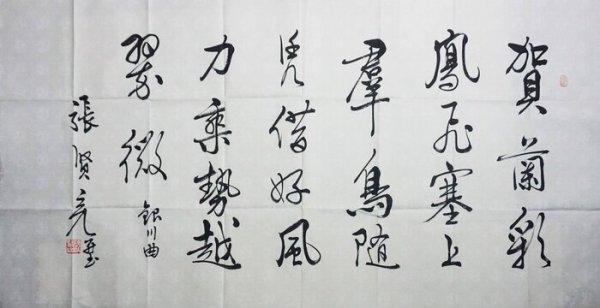 賀蘭彩
鳳飛塞上
羣鳥隨
凭借好風
力乘勢越
翠微
銀川曲
張賢亮